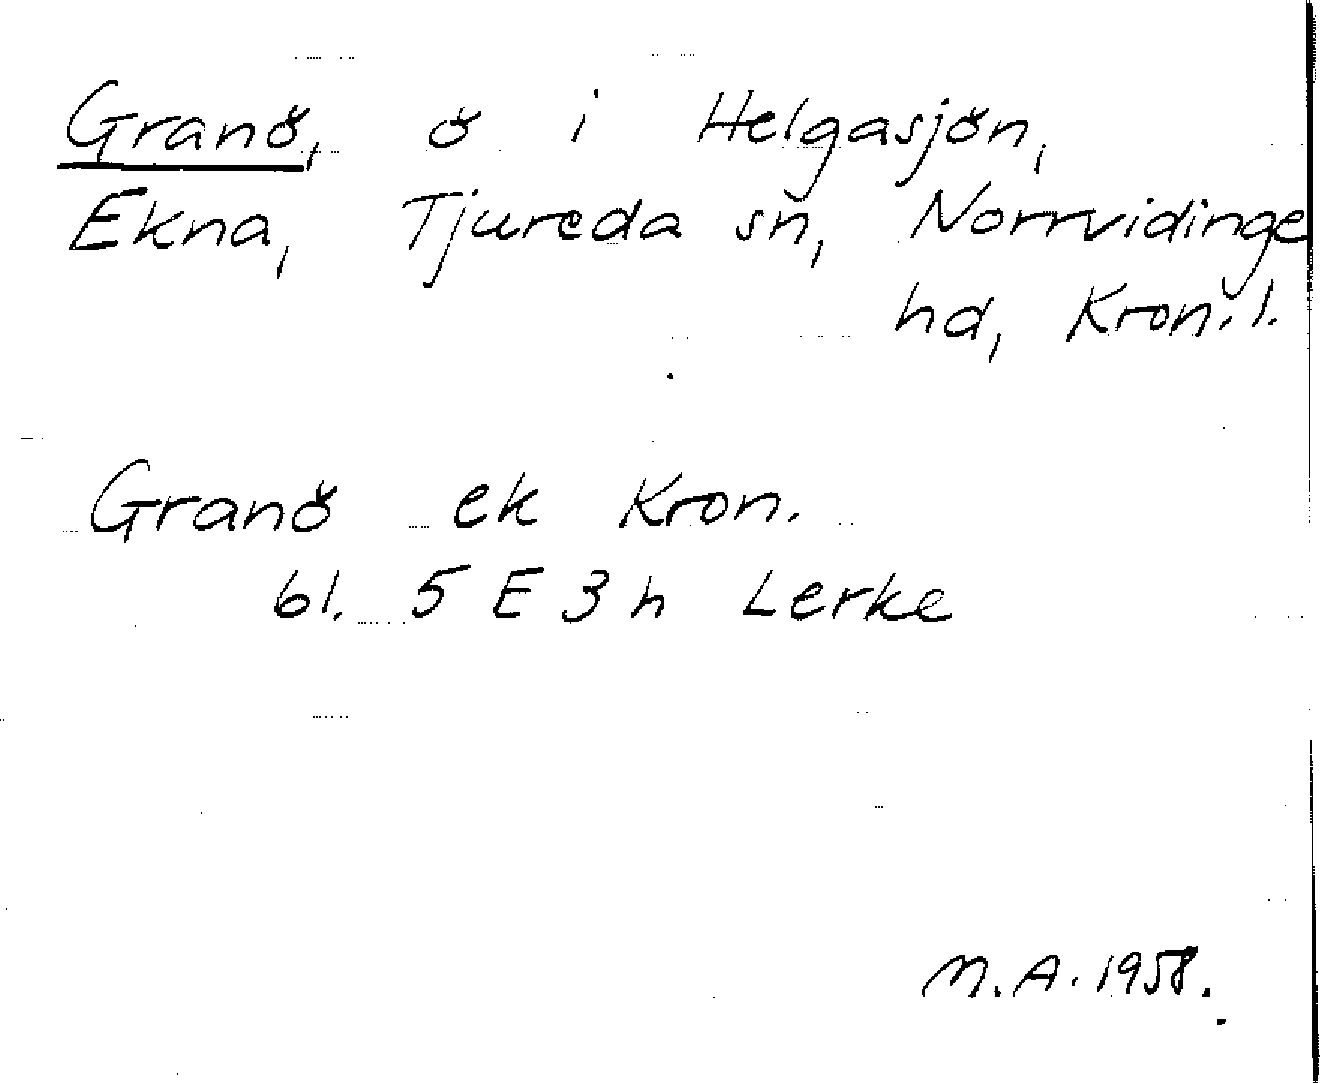 Granö, ö i Helgasjön,
Ekna, Tjureda sn, Norrvidinge
hd, Kron. l.
Granö ek Kron.
bl. 5 E 3 h Lerke
M.A. 1958.